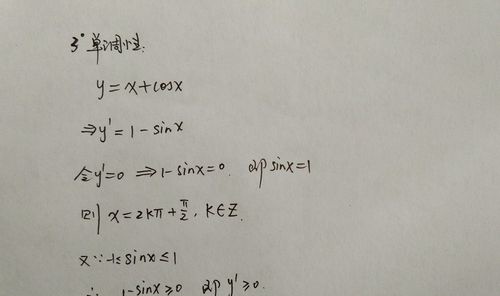 3° 单调性:
y = x + cosx
⇒ y' = 1 - sinx
令 y' = 0 ⇒ 1 - sinx = 0. 即 sinx = 1
则 x = 2kπ + π/2, K∈Z.
又∵ -1≤ sinx ≤ 1
∴ 1 - sinx ≥ 0 即 y' ≥ 0.